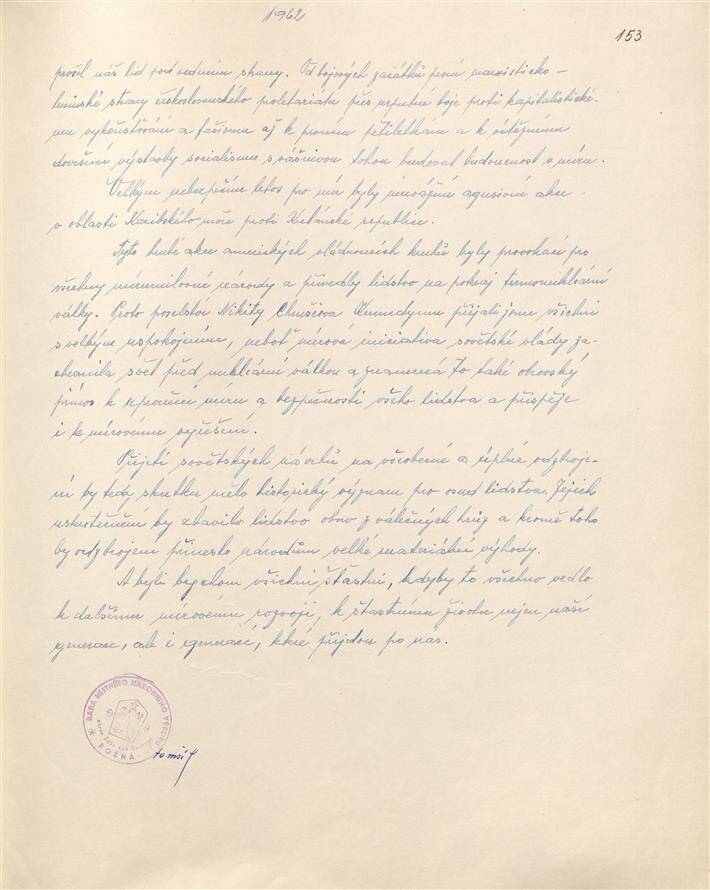 1962
153
prošel náš lid pod vedením strany. Od bojových začátků první marxisticko-
leninské strany československého proletariátu přes urputné boje proti kapitalistické-
mu vykořisťování a fašismu až k prvním pětiletkám a k vítěznému
dovršení výstavby socialismu s vášnivou touhou budovat budoucnost v míru.
Velkým nebezpečím letos pro mír byly agresivní akce
v oblasti Karibského moře proti Kubánské republice.
Tyto hrubé akce amerických vládnoucích kruhů byly provokací pro
všechny mírumilovné národy a přivedly lidstvo na pokraj termonukleární
války. Proto poselství Nikity Chruščova Kennedymu přijali jsme všichni
s velkým uspokojením, neboť mírová iniciativa sovětské vlády za-
chránila svět před nukleární válkou a znamená to také obrovský
přínos k upevnění míru a bezpečnosti všeho lidstva a přispěje
i k mírovému vyřešení.
Přijetí sovětských návrhů na všeobecné a úplné odzbroje-
ní by tedy skutku mělo historický význam pro osud lidstva. Jejich
uskutečnění by zbavilo lidstvo obav z válečných hrůz a kromě toho
by odzbrojení přineslo národům velké materiální výhody.
A byli bychom všichni šťastni, kdyby to všechno vedlo
k dalšímu mírovému rozvoji, k šťastnému životu nejen naší
generace, ale i generací, které přijdou po nás.
RADA MÍSTNÍHO NÁRODNÍHO VÝBORU
ROŽNÁ